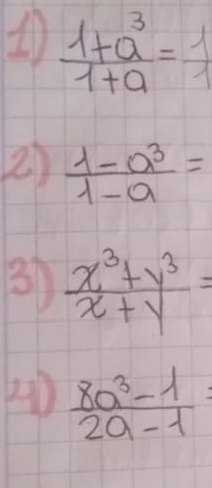 1) (1+a³)/(1+a) = 1/1
2) (1-a³)/(1-a) =
3) (x³+y³)/(x+y) =
4) (8a³-1)/(2a-1) =